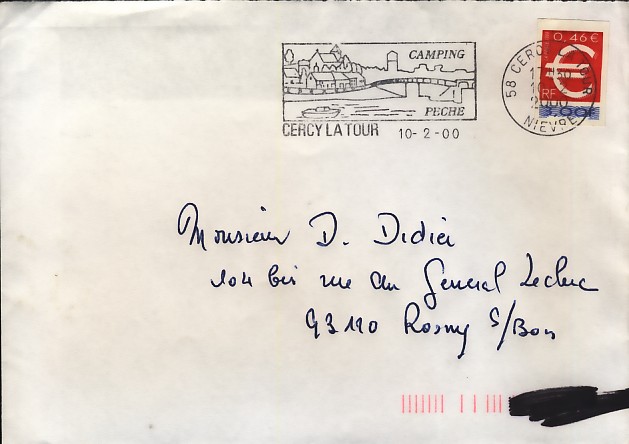 CAMPING
PECHE
CERCY LA TOUR 10-2-00
0,46 €
RF
3,00F
58 CERCY LA TOUR
2000
NIEVRE
Monsieur D. Didier
104 bis rue du General Leclerc
93110 Rosny s/Bois